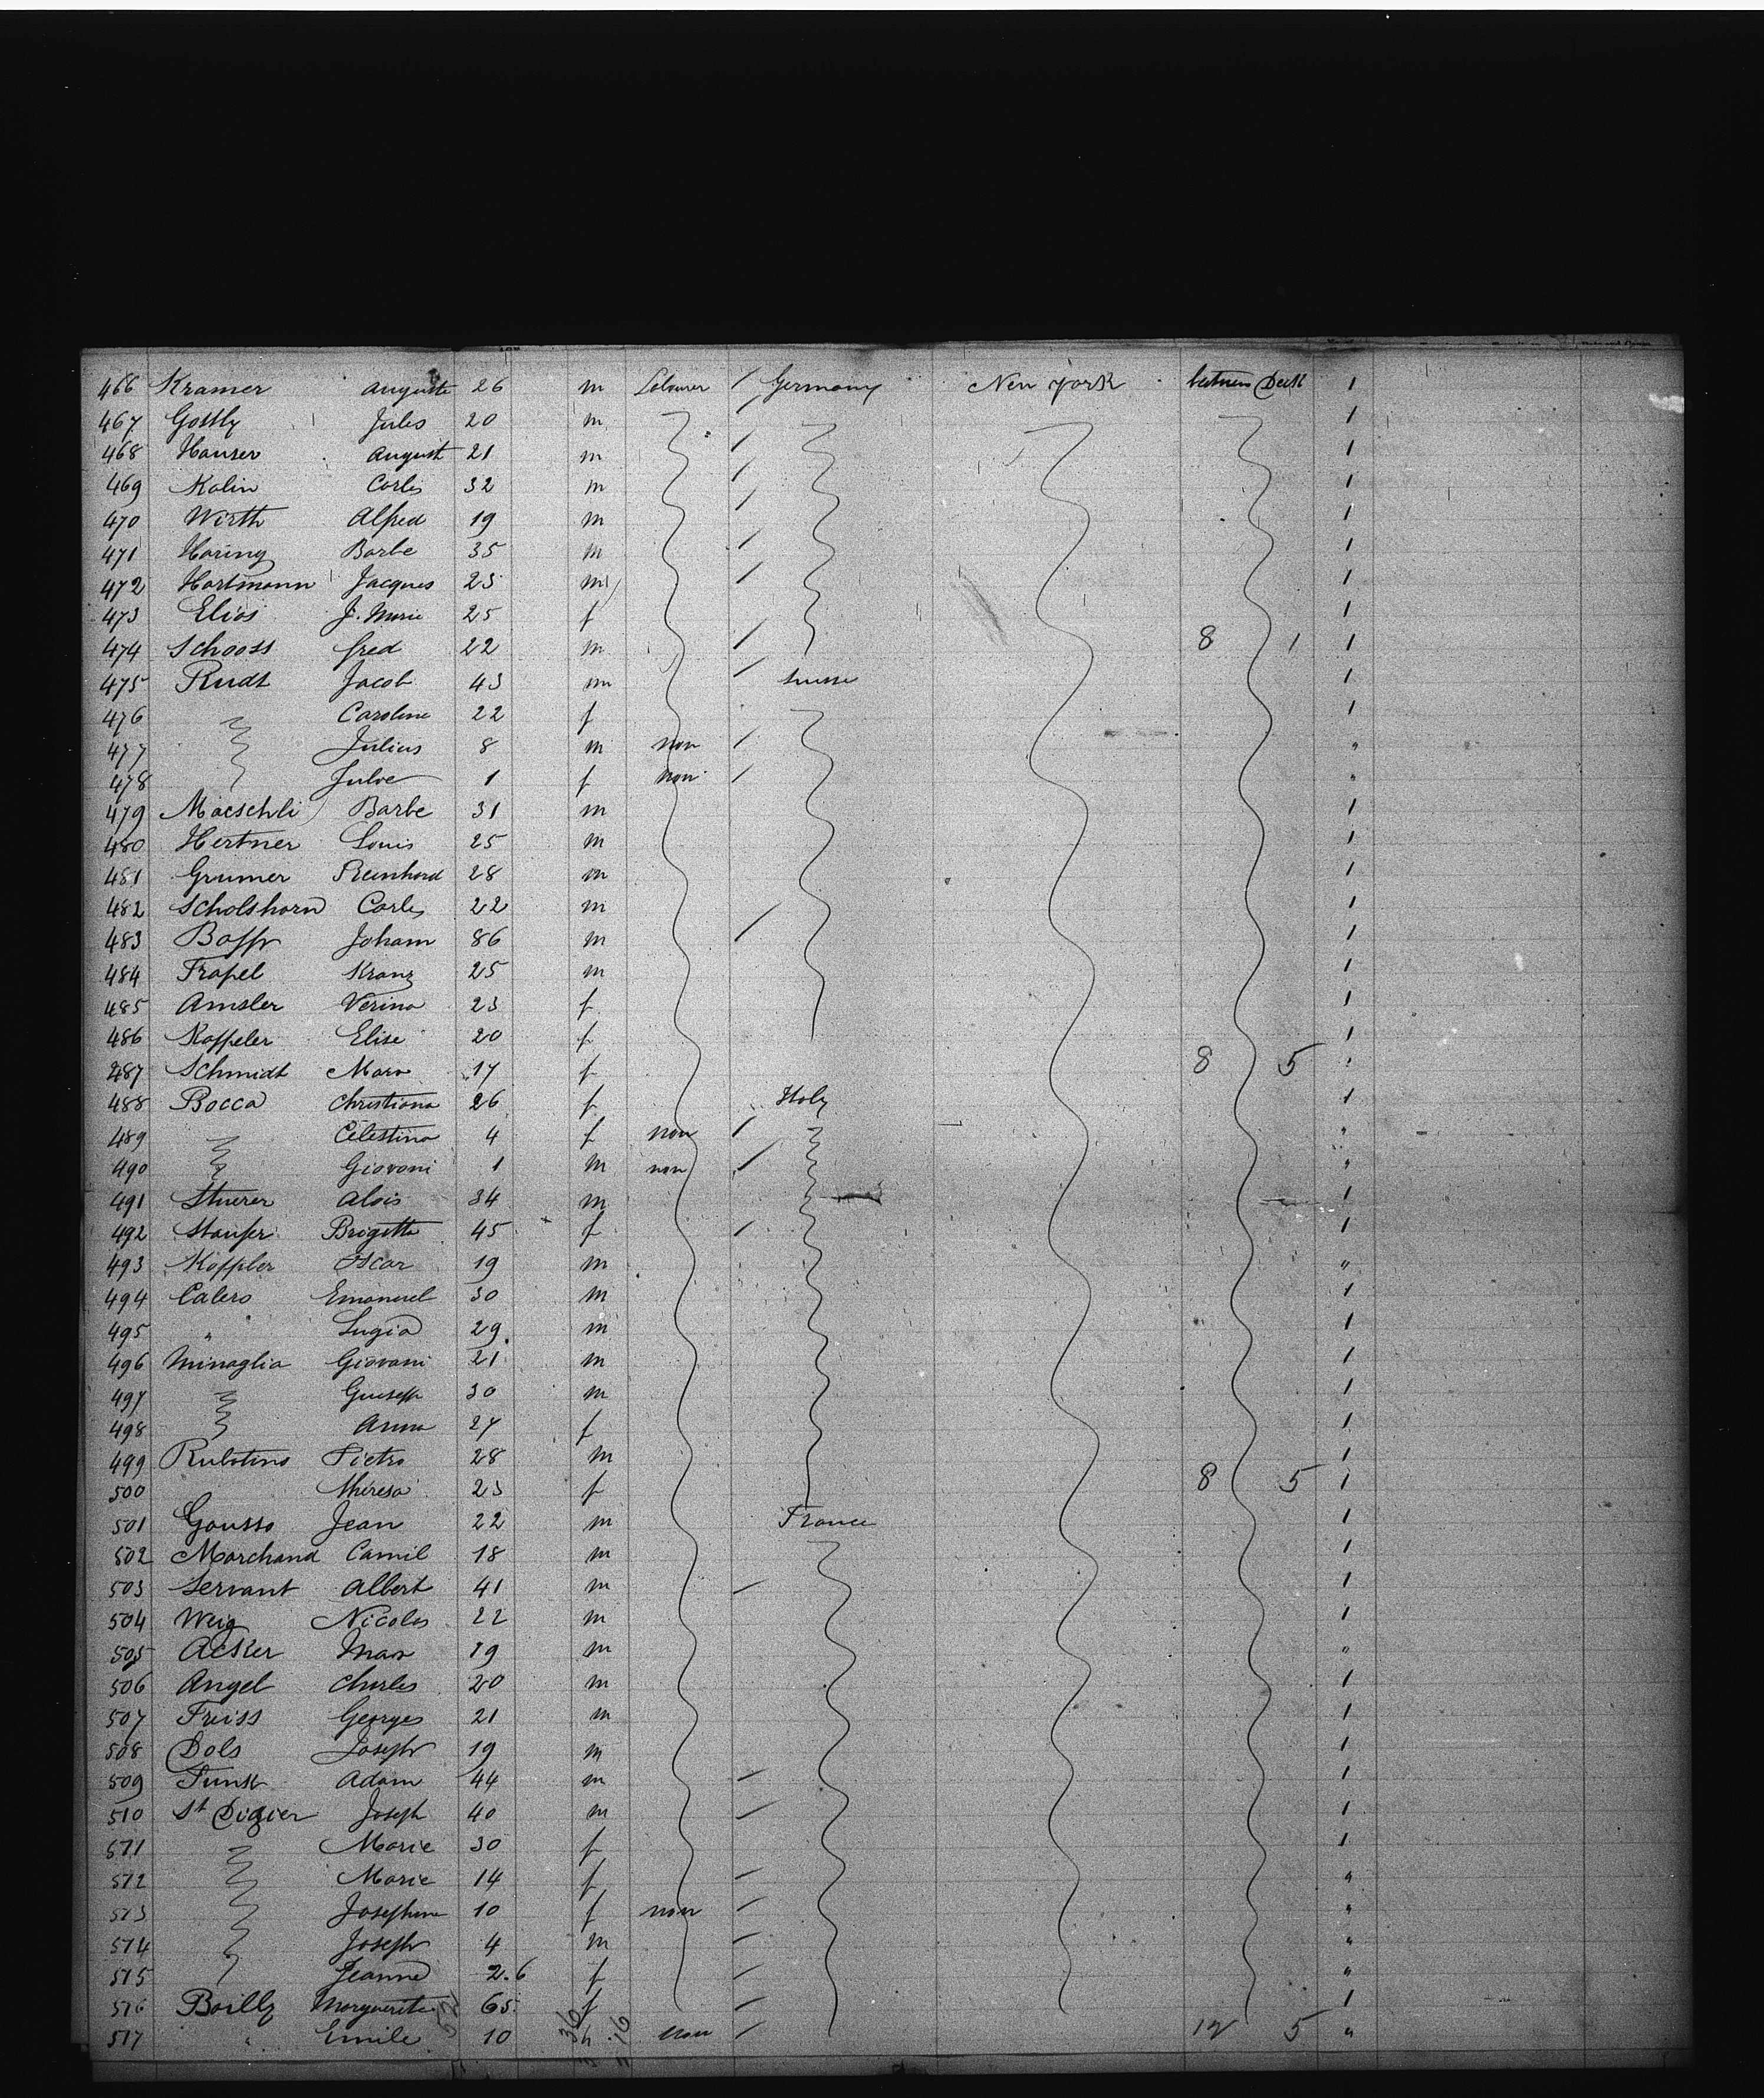 466 Kramer Auguste 26 m Labourer / Germany New York between Deck 1
467 Gostly Jules 20 m / 1
468 Hauser August 21 m / 1
469 Kalin Carles 32 m / 1
470 Wirth Alfred 19 m / 1
471 Haring Barbe 35 m / 1
472 Hartmann Jacques 23 m / 1
473 Elias J. Marie 25 f 1
474 Schooss fred 22 m / 8 1 1
475 Rudt Jacob 43 m / Suisse 1
476 Caroline 22 f 1
477 Julius 8 m non / "
478 1 f non / "
479 Maeschli Barbe 31 m 1
480 Hertner Louis 25 m 1
481 Grumer Reinhard 28 m 1
482 Scholshorn Carles 22 m 1
483 Joham 86 m / 1
484 Trapel Kranz 25 m 1
485 Amsler Verina 23 f 1
486 Kappeler Elise 20 f 1
487 Schmidt 17 f 8 5
488 Bocca Christiana 26 f Italy 1
489 Celestina 4 f non / "
490 Giovani 1 m non / "
491 Stuerer Alois 34 m 1
492 Staufer Brigitta 45 f / 1
493 Koppler Oscar 19 m "
494 Calero Emanuel 30 m 1
495 " Lugia 29 m 1
496 Minaglia Giovani 21 m 1
497 Guisepp 30 m 1
498 Anna 27 f 1
499 Rubatino Pietro 28 m 1
500 Theresa 23 f 8 5 1
501 Gousso Jean 22 m France 1
502 Marchand Camil 18 m 1
503 Servant Albert 41 m / 1
504 Weig Nicolas 22 m 1
505 Acker Max 19 m "
506 Angel Charles 20 m 1
507 Freiss Georges 21 m 1
508 Dols Joseph 19 m 1
509 Funk Adam 44 m / 1
510 St Dizier Joseph 40 m / 1
511 Marie 30 f 1
512 Marie 14 f / "
513 Josephine 10 f non / "
514 Joseph 4 m / "
515 Jeanne 2.6 f / "
516 Bailly Marguerite 65 f / 1
517 " Emile 10 non / 12 5 "